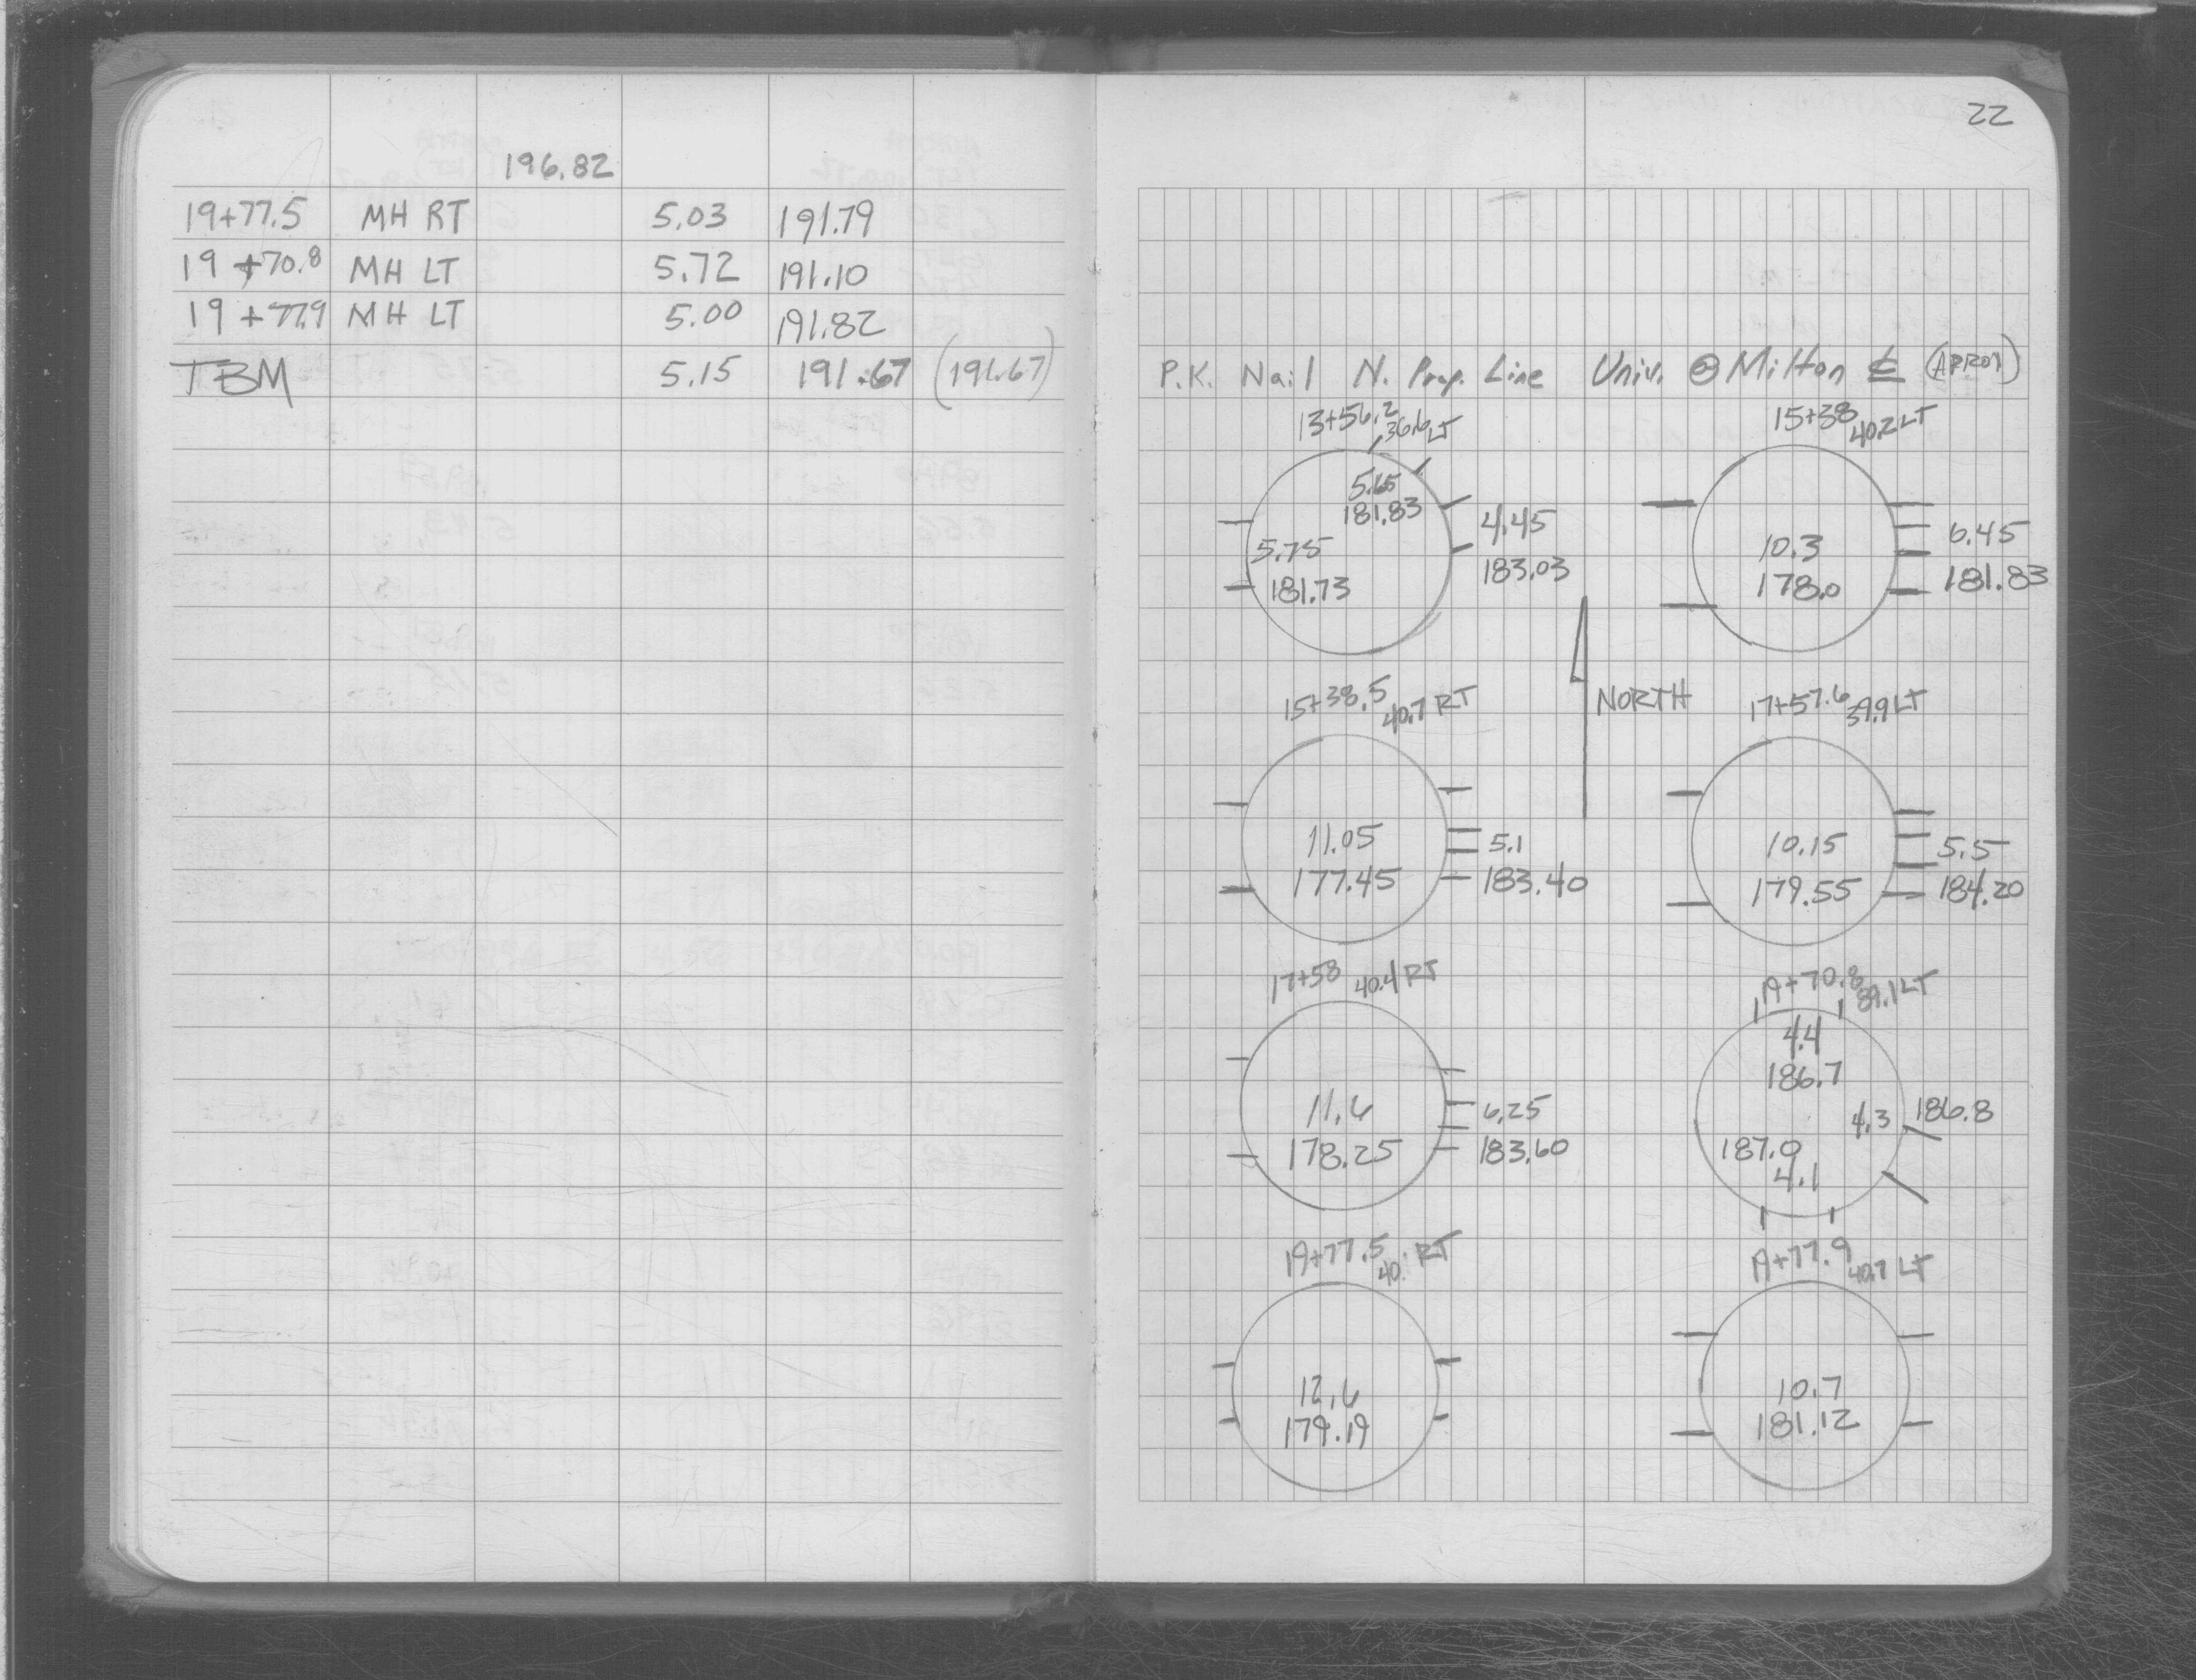 22
196.82
19+77.5 MH RT 5.03 191.79
19+70.8 MH LT 5.72 191.10
19+77.9 MH LT 5.00 191.82
TBM 5.15 191.67 (191.67)
P.K. Nail N. Prop. Line Univ. @ Milton ℄ (APROX)
13+56.2 36.6 LT
5.65
181.83
5.75
181.73
4.45
183.03
15+38 40.2 LT
10.3
178.0
6.45
181.83
NORTH
15+38.5 40.7 RT
11.05
177.45
5.1
183.40
17+57.6 39.9 LT
10.15
179.55
5.5
184.20
17+58 40.4 RT
11.6
178.25
6.25
183.60
19+70.8 39.1 LT
4.4
186.7
4.3 186.8
187.0
4.1
19+77.5 40. RT
12.6
179.19
19+77.9 40.7 LT
10.7
181.12